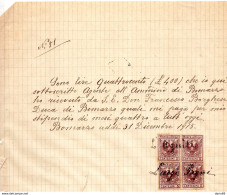 N. 71
Sono Lire Quattrocento (£ 400) che io qui
sottoscritto Agente di Amministr di Bomarzo
ho ricevuto da S. E. Don Francesco Borghese
Duca di Bomarzo quali mi pago per mio
stipendio di mesi quattro a tutt'oggi
Bomarzo addì 31 Dicembre 1918.
Luigi